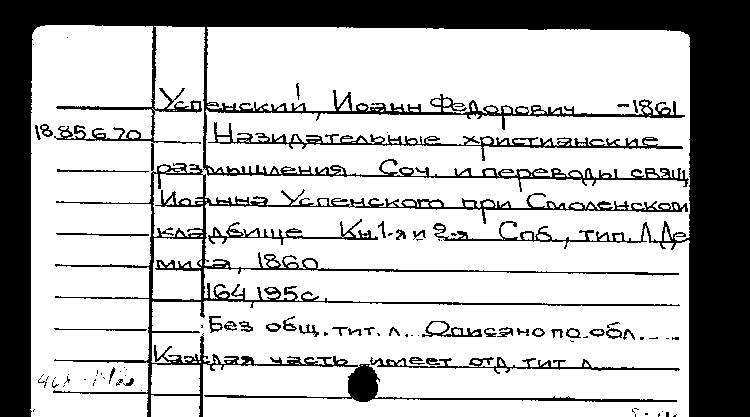 Успенский, Иоанн Федорович -1861
18.85.6.70 Назидательные христианские
размышления Соч. и переводы свящ.
Иоанна Успенского при Смоленском
кладбище Кн.1-я и 2-я Спб., тип. Л.Де
миса, 1860
164,195с.
Без общ. тит. л. Описано по обл.
Каждая часть имеет отд. тит л.